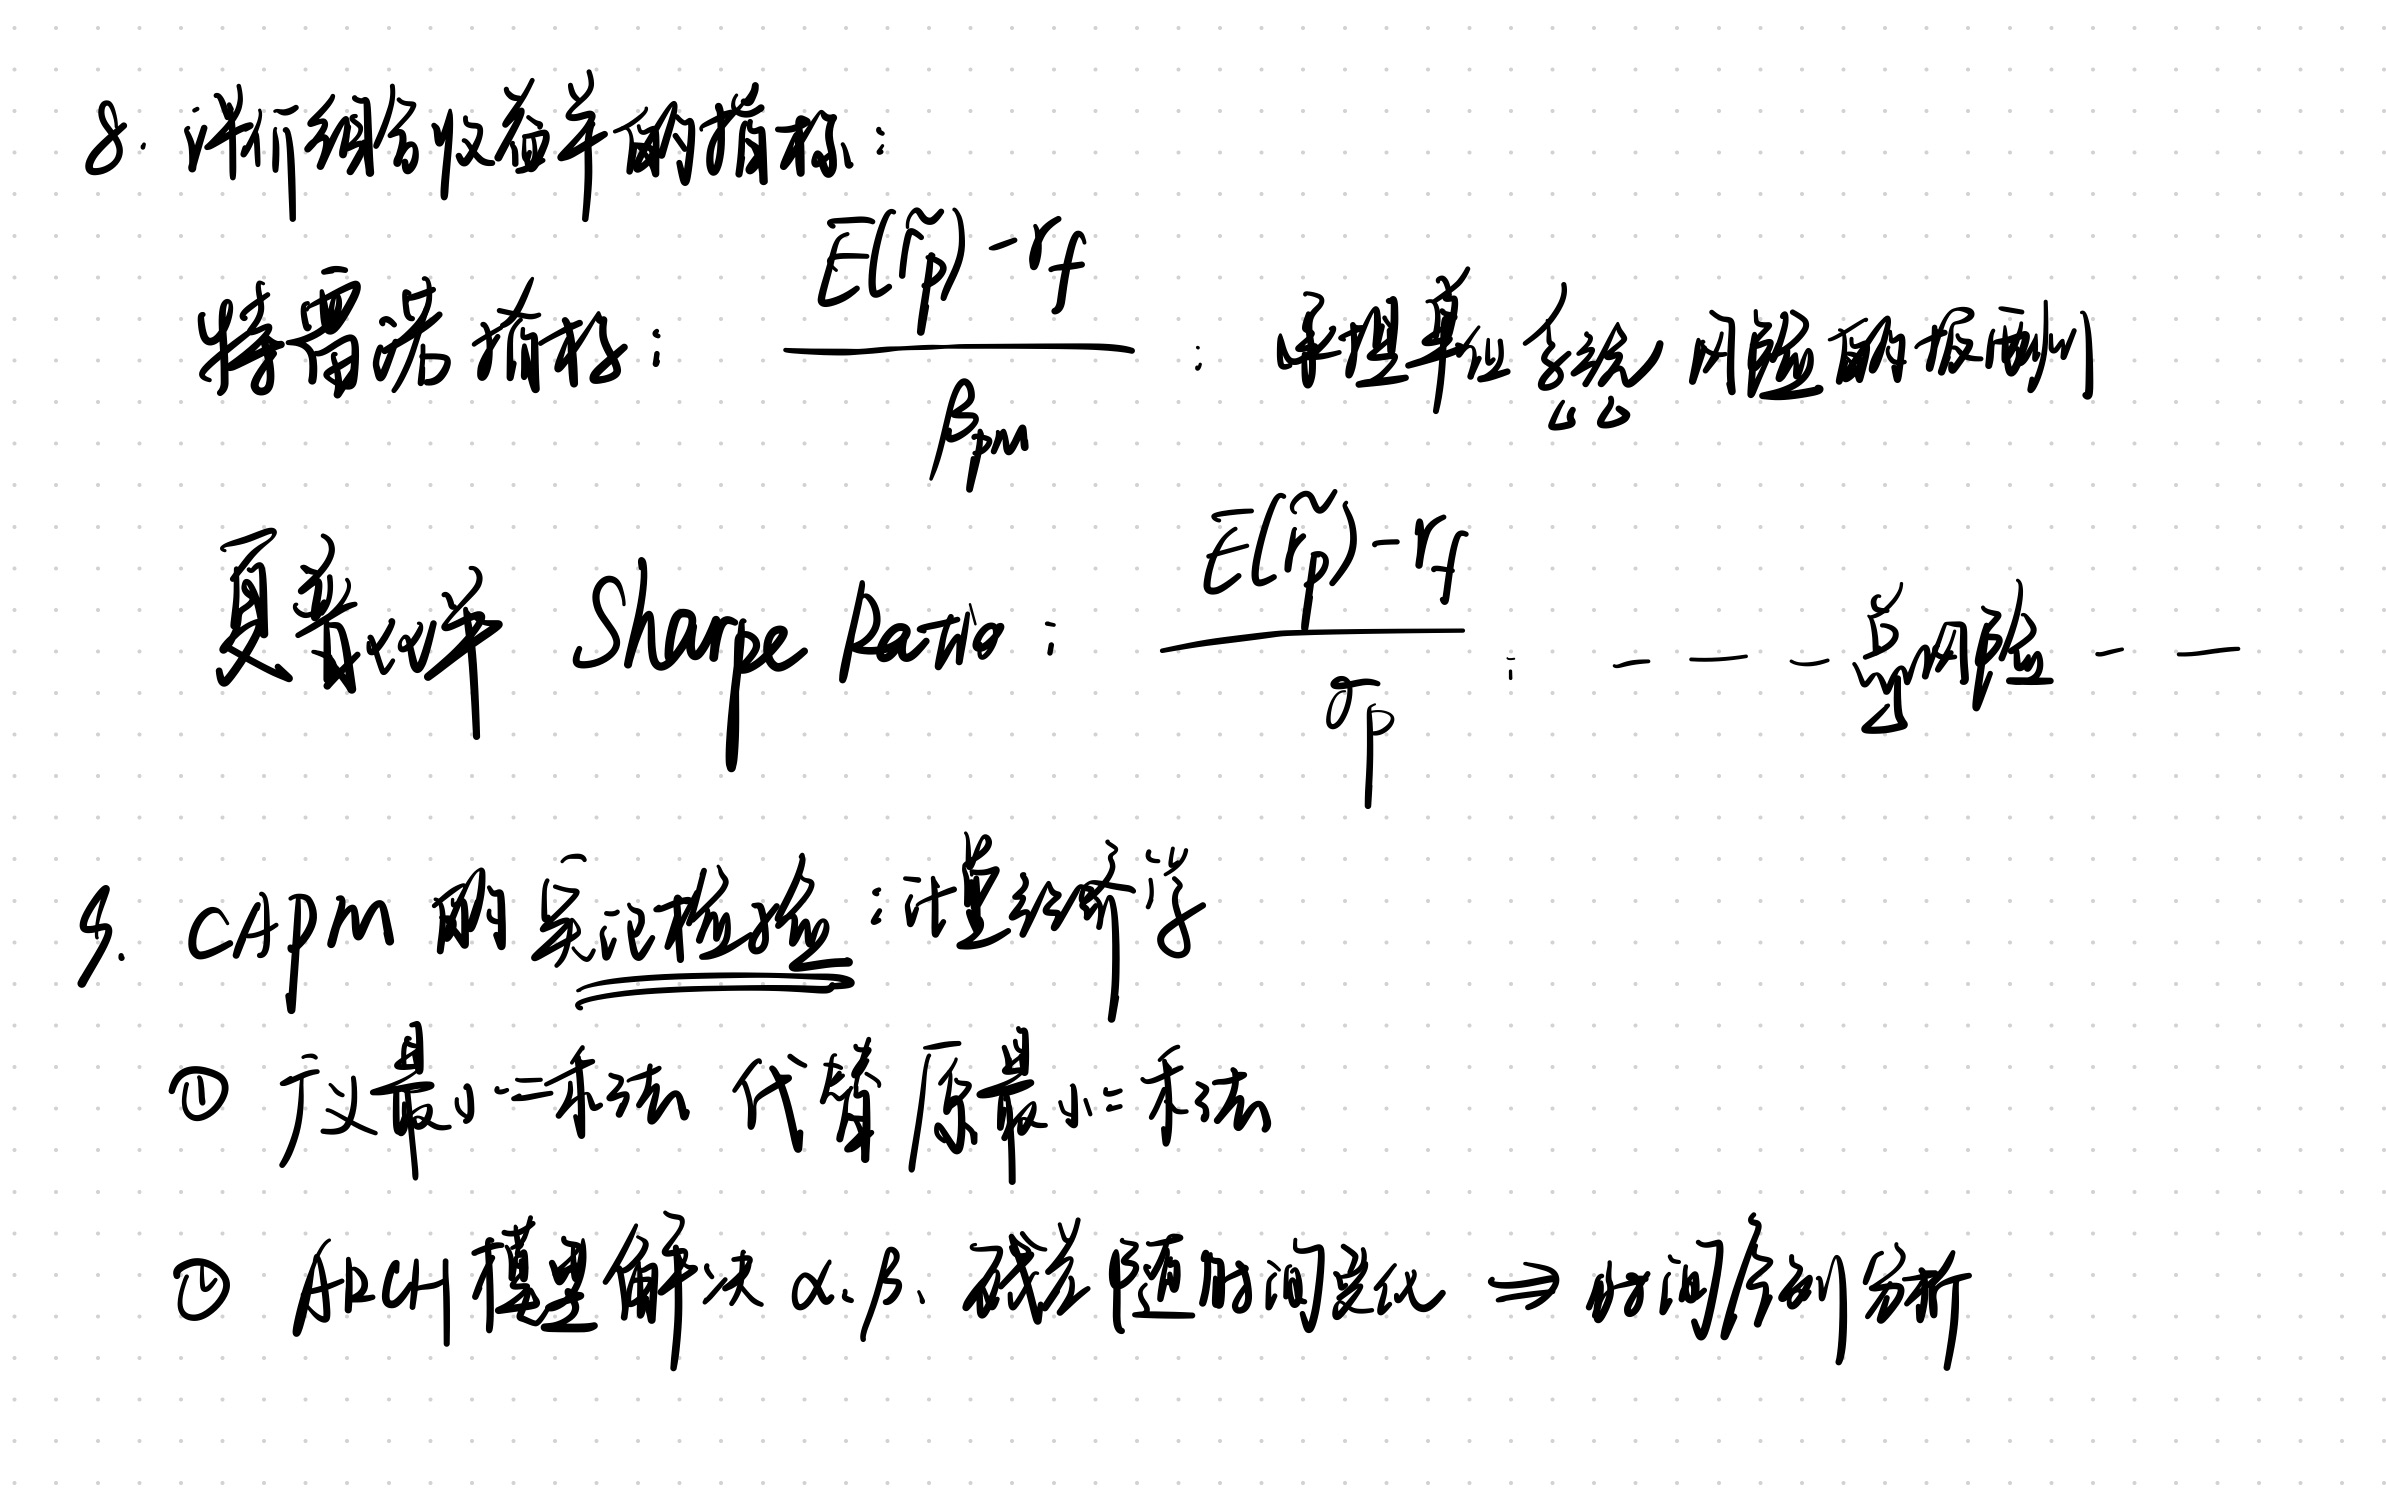 8. 评价组合收益率的指标:
特雷诺指标: E(r̃p) - rf / βpm : 单位系统风险的
夏普比率 Sharpe Ratio: E(r̃p) - rf / σp : — — — 总风险 — —
9. CAPM 的实证检验: 计量经济学
① 广义最小二乘法 代替 原最小二乘法
② 用 模型解决 α、β、 随时间变化 ⇒ 时间序列分析